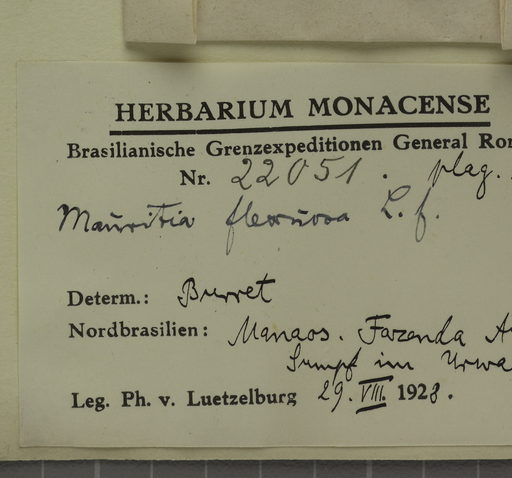 HERBARIUM MONACENSE
Brasilianische Grenzexpeditionen General Ron
Nr. 22051. plag.
Mauritia flexuosa L. f.
Determ.: Burret
Nordbrasilien: Manaos. Fazenda A
Sumpf im Urwa
Leg. Ph. v. Luetzelburg 29. VIII. 1928.